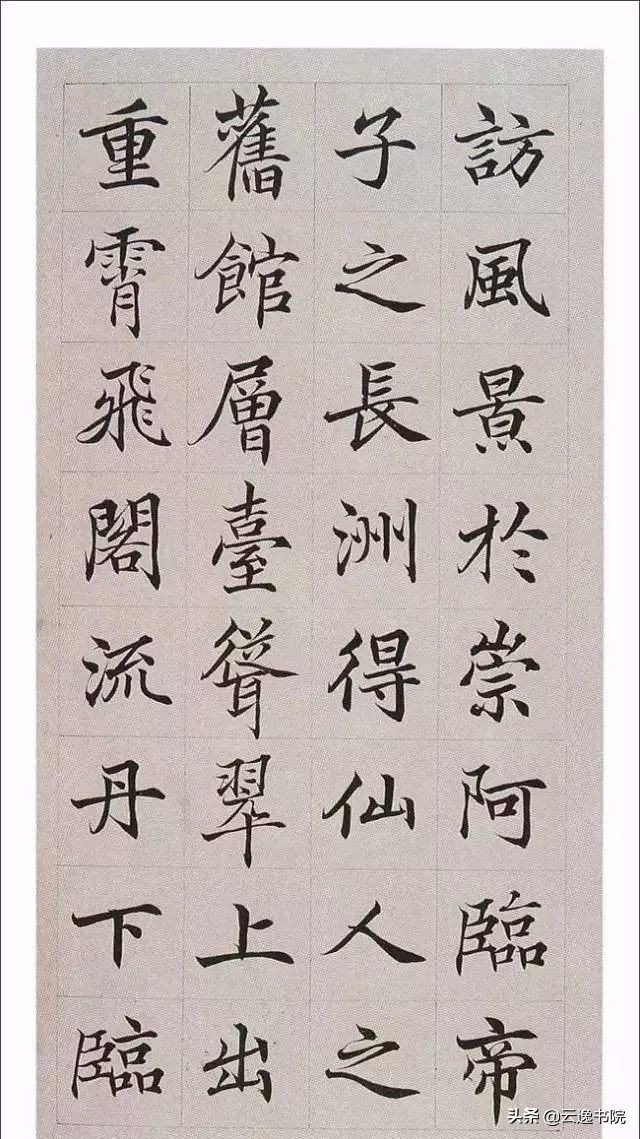 訪風景於崇阿臨帝
子之長洲得仙人之
舊館層臺聳翠上出
重霄飛閣流丹下臨
头条@云逸书院